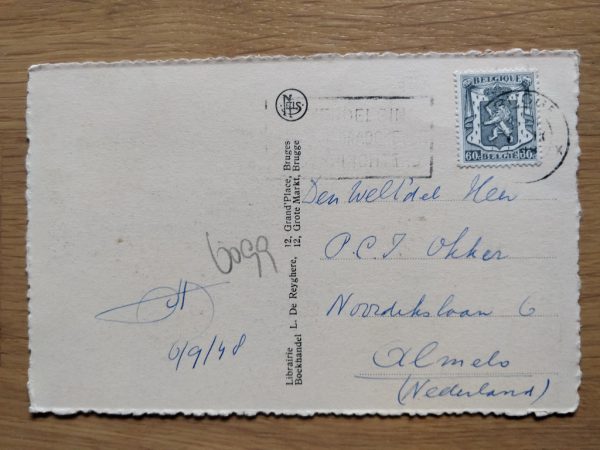 NELS
BELGIQUE
60c 60c
BELGIË
Den Weled'del Heer
P.C.J. Okker
Noordikslaan 6
Almelo
(Nederland)
Librairie L. De Reyghere, 12, Grand'Place, Bruges
Boekhandel 12, Grote Markt, Brugge
6099
6/9/48